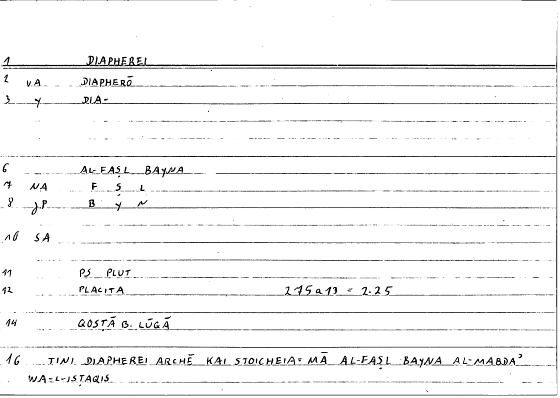 1 DIAPHEREI
2 VA DIAPHERŌ
3 Y DIA-
6 AL-FAṢL BAYNA
7 NA F Ṣ L
8 JP B Y N
10 SA
11 PS PLUT
12 PLACITA 275a13 = 2.25
14 QOSṬĀ B. LŪQĀ
16 TINI DIAPHEREI ARCHĒ KAI STOICHEIA= MĀ AL-FAṢL BAYNA AL-MABDA'
WA=L-ISṬAQIS